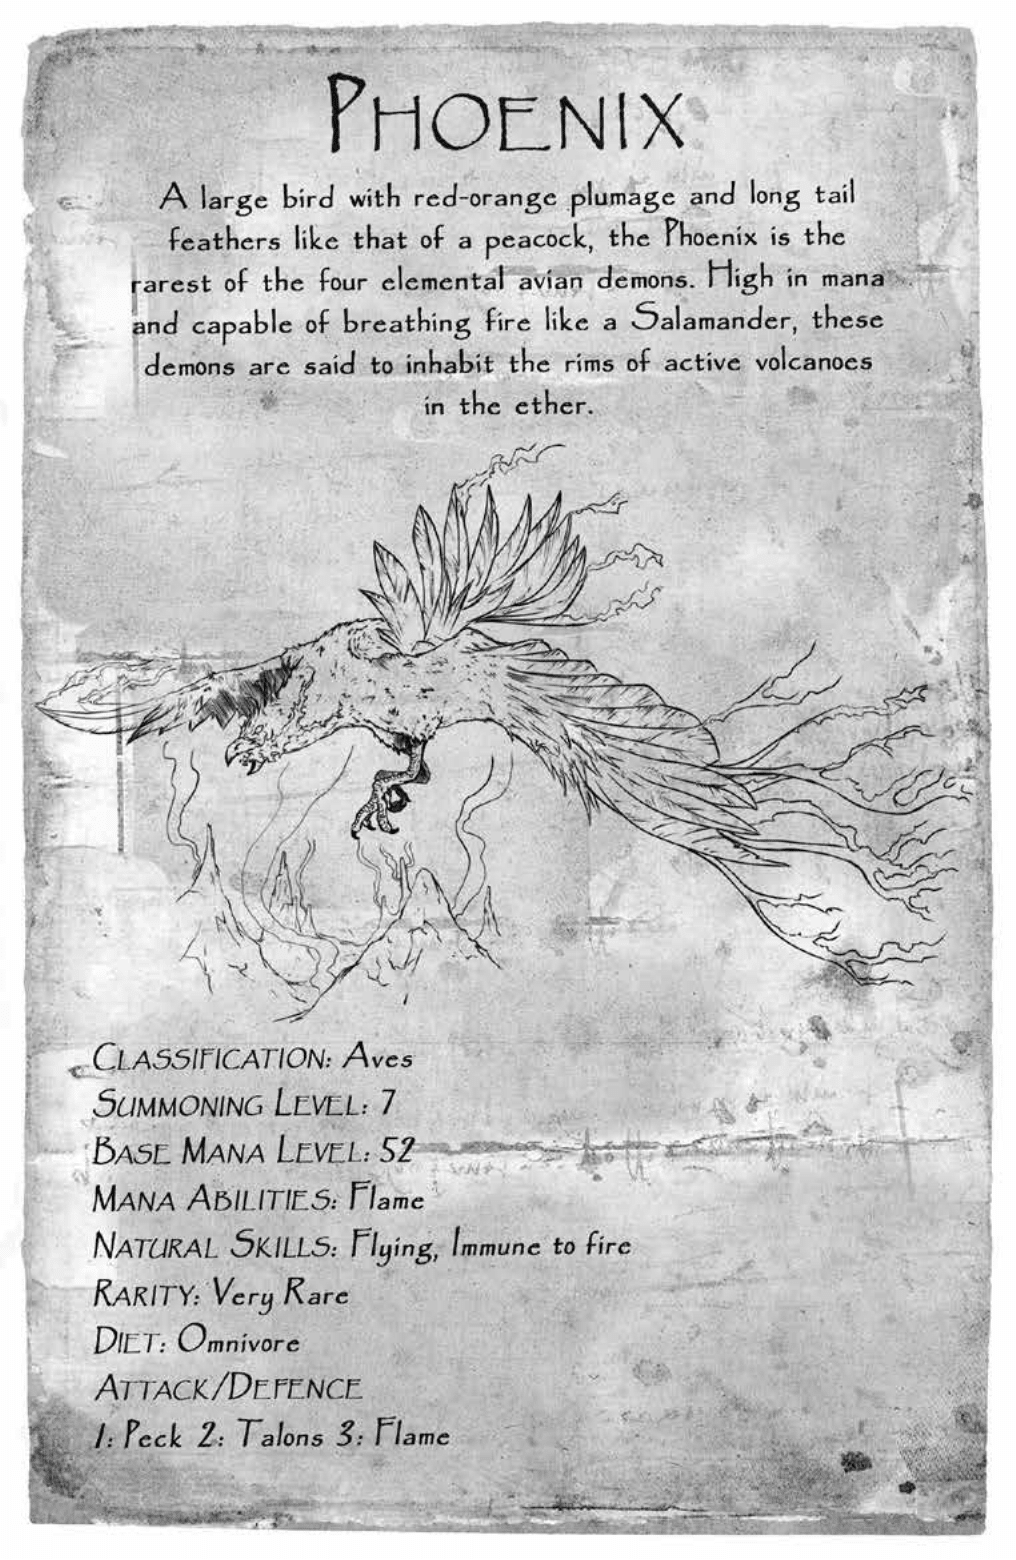 PHOENIX
A large bird with red-orange plumage and long tail
feathers like that of a peacock, the Phoenix is the
rarest of the four elemental avian demons. High in mana
and capable of breathing fire like a Salamander, these
demons are said to inhabit the rims of active volcanoes
in the ether.
CLASSIFICATION: Aves
SUMMONING LEVEL: 7
BASE MANA LEVEL: 52
MANA ABILITIES: Flame
NATURAL SKILLS: Flying, Immune to fire
RARITY: Very Rare
DIET: Omnivore
ATTACK/DEFENCE
1: Peck 2: Talons 3: Flame